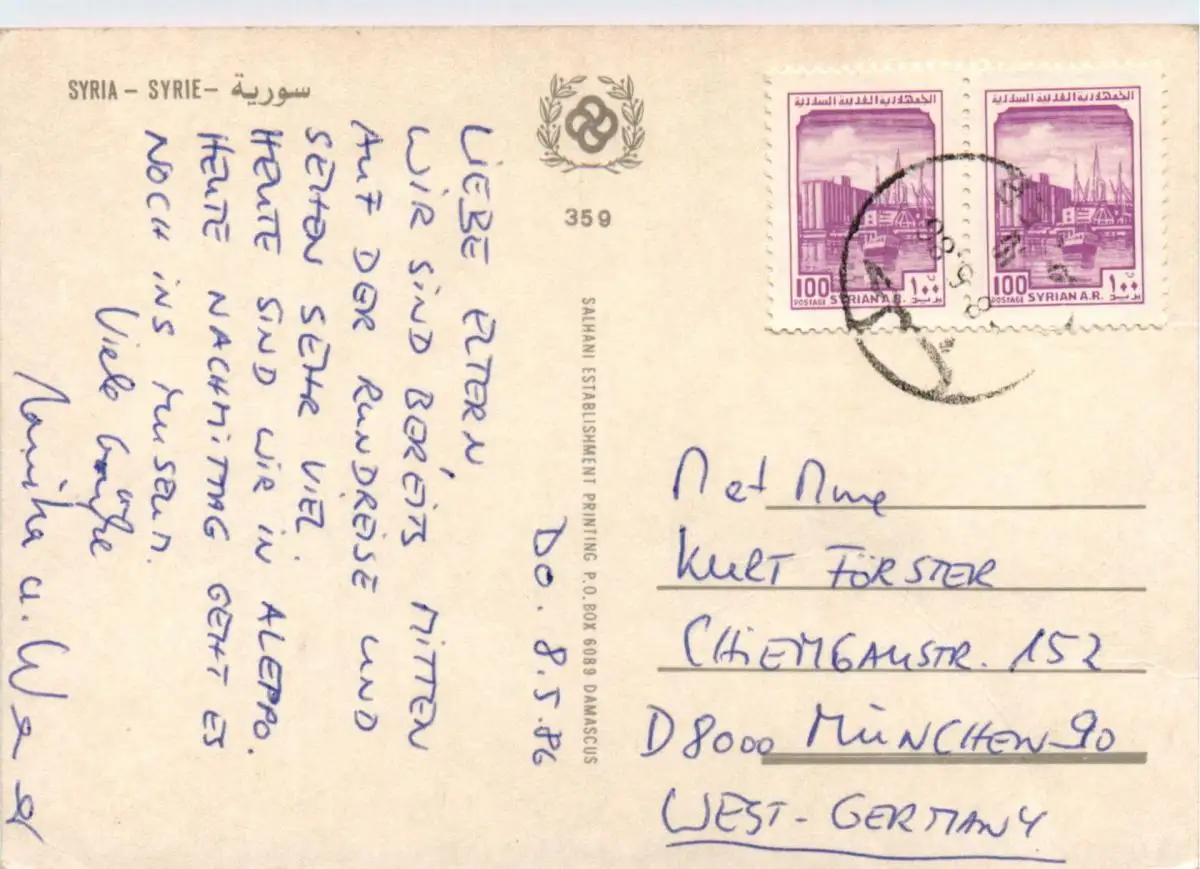 SYRIA – SYRIE – سورية
359
SALHANI ESTABLISHMENT PRINTING P.O.BOX 6089 DAMASCUS
DO. 8.5.86
LIEBE ELTERN,
WIR SIND BEREITS MITTEN
AUF DER RUNDREISE UND
SEHEN SEHR VIEL.
HEUTE SIND WIR IN ALEPPO.
HEUTE NACHMITTAG GEHT ES
NOCH INS MUSEUM.
Viele Grüße
u.
الجمهورية العربية السورية
100 ١٠٠
POSTAGE SYRIAN A.R.
الجمهورية العربية السورية
100 ١٠٠
POSTAGE SYRIAN A.R.
M et Mme
KURT FÖRSTER
CHIEMGAUSTR. 152
D 8000 MÜNCHEN 90
WEST-GERMANY